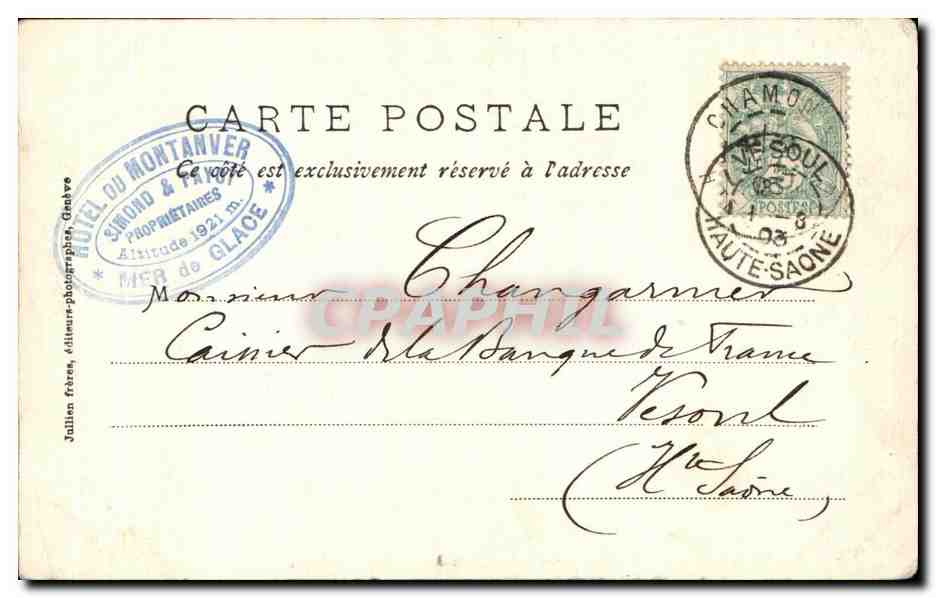 CARTE POSTALE
Ce côté est exclusivement réservé à l'adresse
HOTEL DU MONTANVER
SIMOND & PAYOT
PROPRIÉTAIRES
Altitude 1921 m.
* MER de GLACE *
CHAMON
VESOUL
1 - 8
03
HAUTE-SAONE
POSTES
Monsieur Changarnier
Caissier de la Banque de France
Vesoul
(Hte Saône)
CPAPHIL
Jullien frères, éditeurs-photographes, Genève